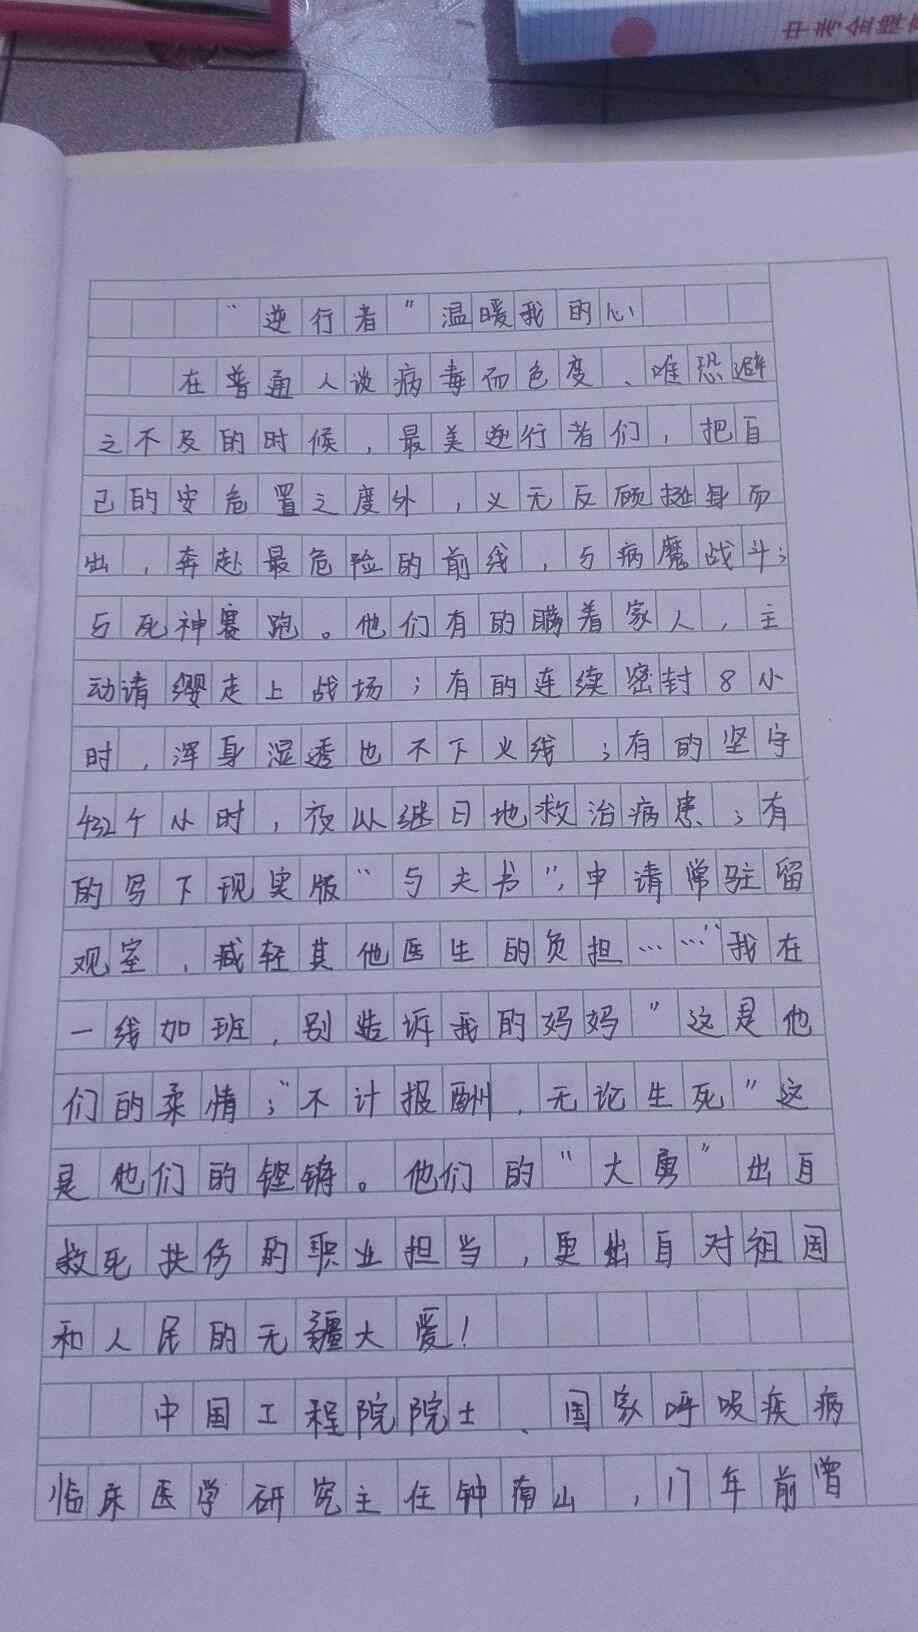 中考金牌
“逆行者”温暖我的心
在普通人谈病毒而色变、唯恐避
之不及的时候，最美逆行者们，把自
己的安危置之度外，义无反顾挺身而
出，奔赴最危险的前线，与病魔战斗；
与死神赛跑。他们有的瞒着家人，主
动请缨走上战场；有的连续密封8小
时，浑身湿透也不下火线；有的坚守
432个小时，夜以继日地救治病患；有
的写下现实版“与夫书”，申请常驻留
观室，减轻其他医生的负担……“我在
一线加班，别告诉我的妈妈”这是他
们的柔情；“不计报酬，无论生死”这
是他们的铿锵。他们的“大勇”出自
救死扶伤的职业担当，更出自对祖国
和人民的无疆大爱！
中国工程院院士、国家呼吸疾病
临床医学研究主任钟南山，17年前曾